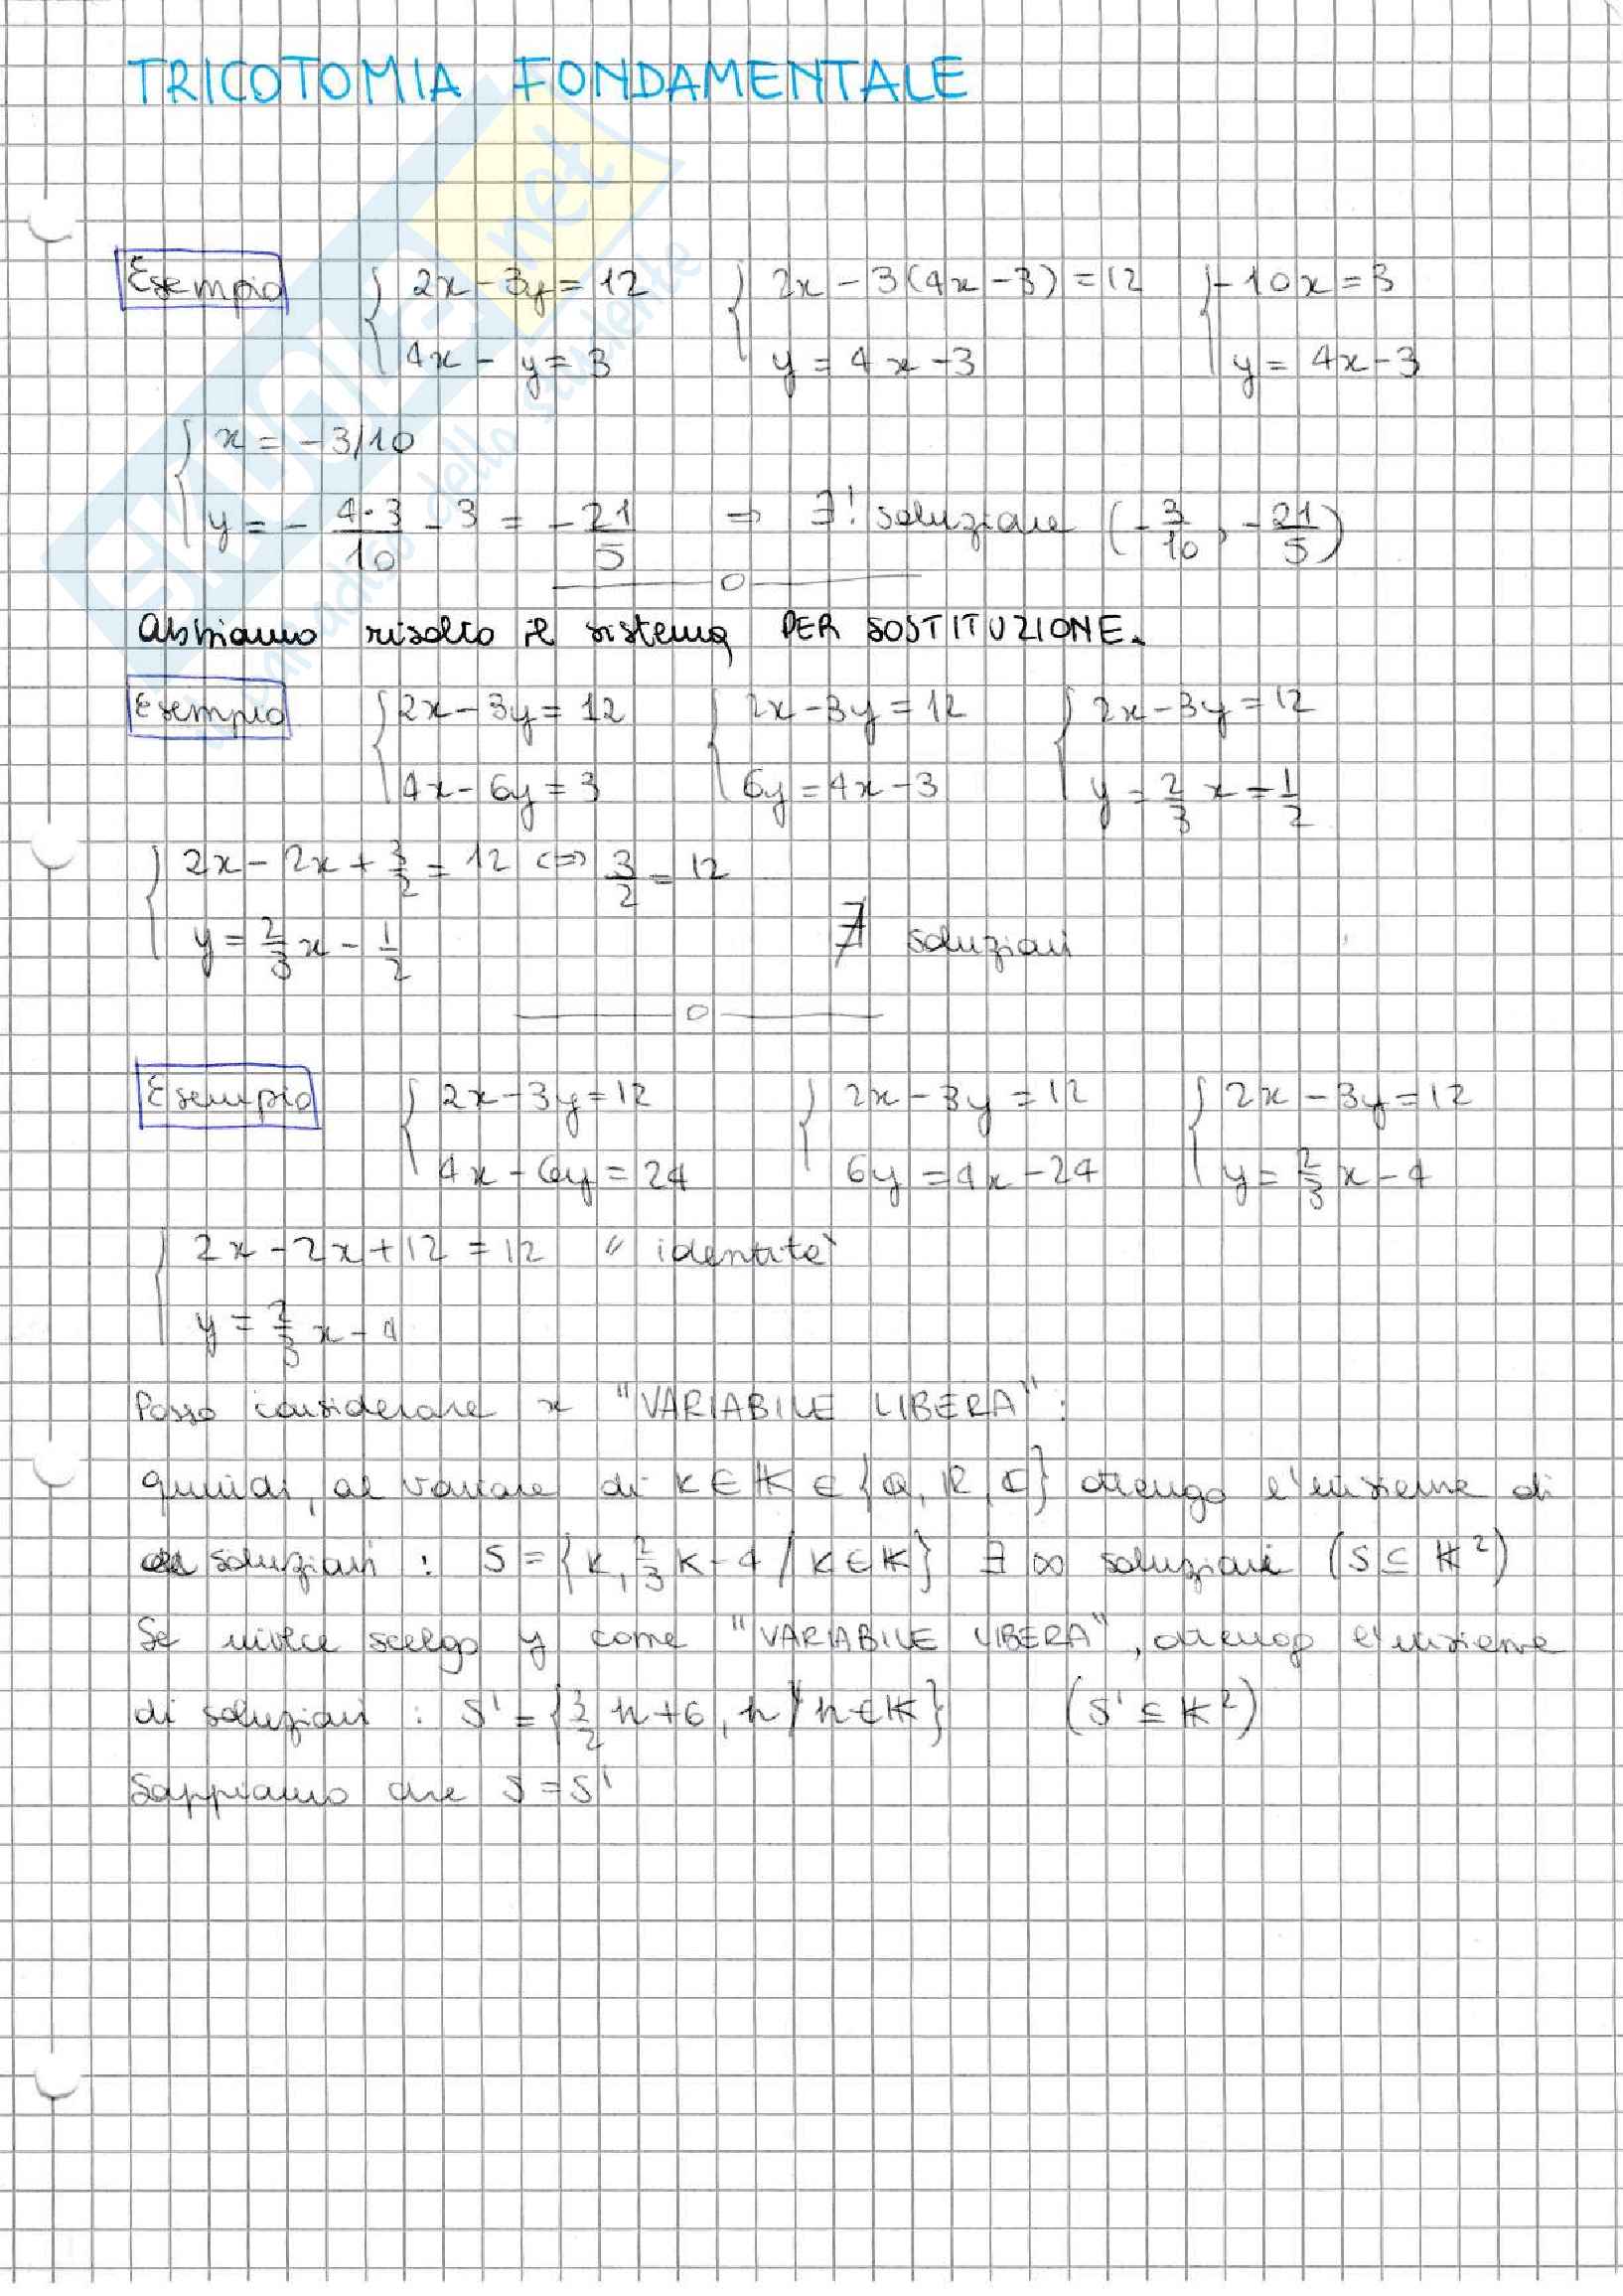 TRICOTOMIA FONDAMENTALE
Esempio { 2x - 3y = 12 { 2x - 3(4x - 3) = 12 { -10x = 3
4x - y = 3 y = 4x - 3 y = 4x - 3
{ x = -3/10
y = - 4·3/10 - 3 = - 21/5 ⇒ ∃! soluzione (- 3/10, - 21/5)
Abbiamo risolto il sistema PER SOSTITUZIONE.
Esempio { 2x - 3y = 12 { 2x - 3y = 12 { 2x - 3y = 12
4x - 6y = 3 6y = 4x - 3 y = 2/3 x - 1/2
{ 2x - 2x + 3/2 = 12 <=> 3/2 = 12
y = 2/3 x - 1/2 ∄ soluzioni
Esempio { 2x - 3y = 12 { 2x - 3y = 12 { 2x - 3y = 12
4x - 6y = 24 6y = 4x - 24 y = 2/3 x - 4
{ 2x - 2x + 12 = 12 " identità
y = 2/3 x - 4
Posso considerare x "VARIABILE LIBERA" :
quindi, al variare di k ∈ 𝕂 ∈ {Q, R, C} ottengo l'insieme di
soluzioni : S = {k, 2/3 k - 4 / k ∈ 𝕂} ∃ ∞ soluzioni (S ⊆ 𝕂²)
Se invece scelgo y come "VARIABILE LIBERA", ottengo l'insieme
di soluzioni : S' = {3/2 h + 6, h / h ∈ 𝕂} (S' ⊆ 𝕂²)
Sappiamo che S = S'
SKUOLA.net
il paradiso dello studente